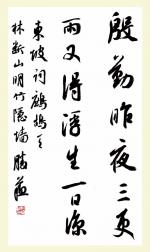 殷勤昨夜三更
雨又得浮生一日凉
东坡词鹧鸪天
林断山明竹隐墙